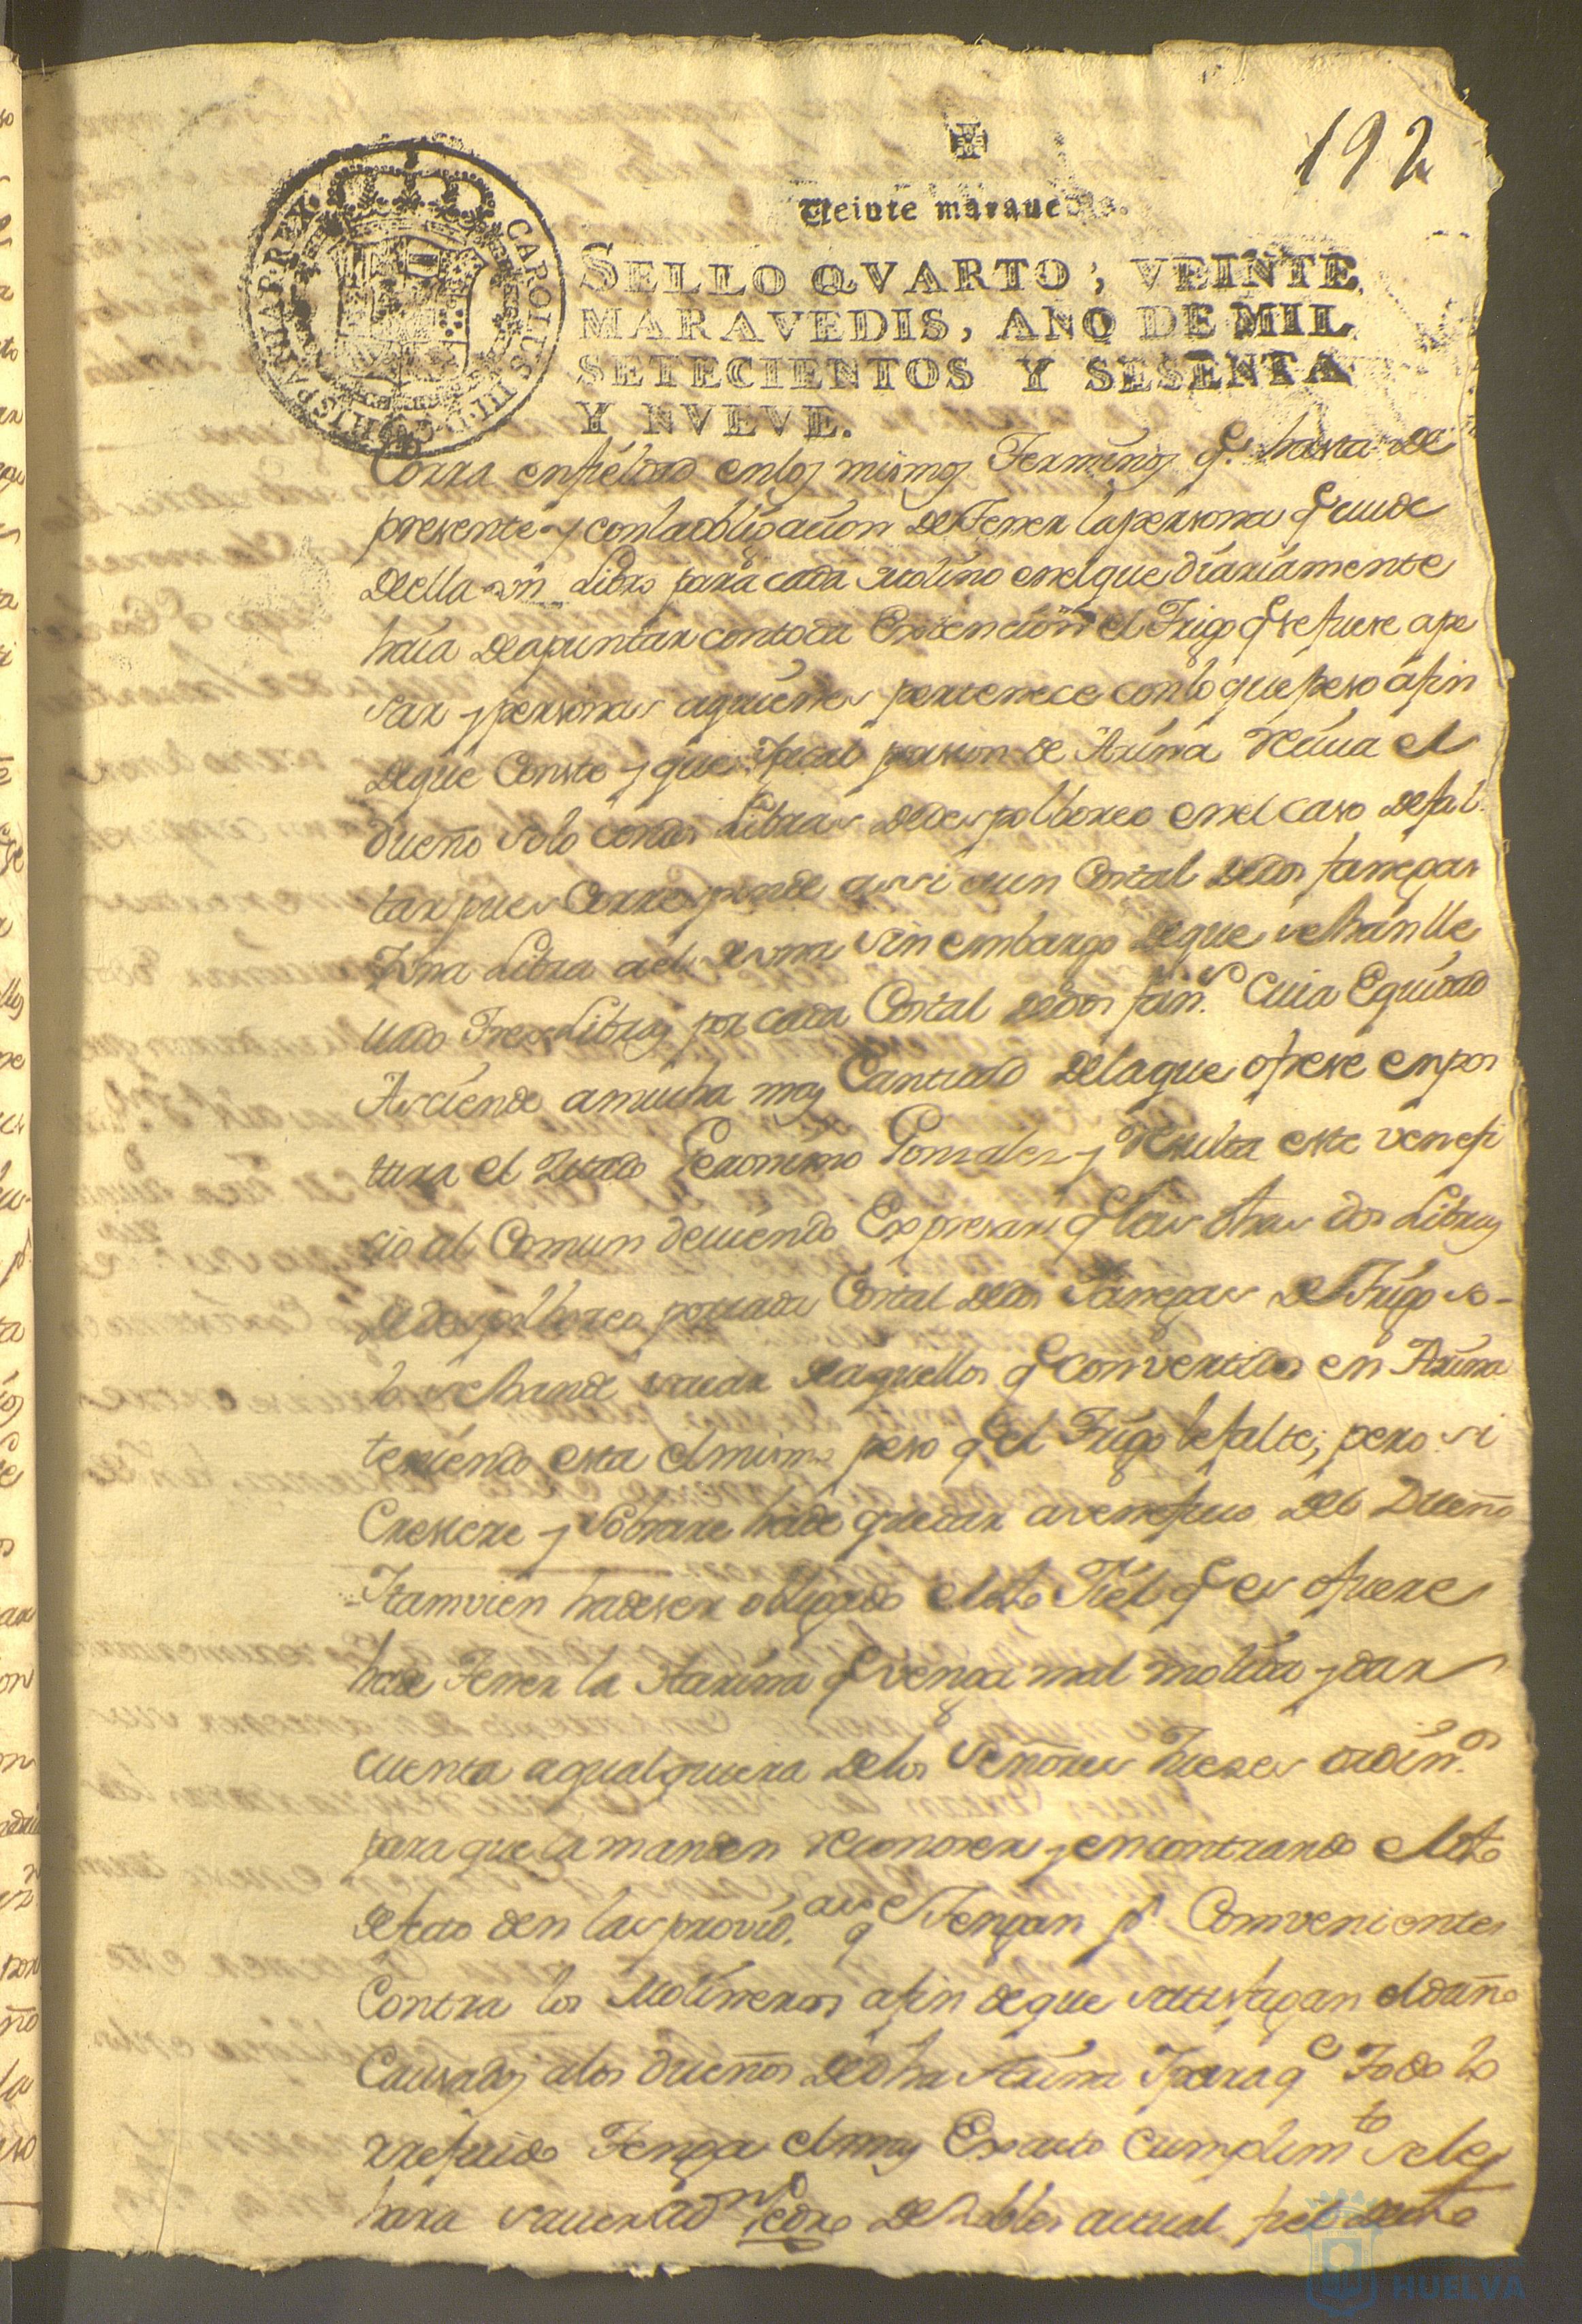 192
Veinte maravedis.
SELLO QVARTO, VEINTE
MARAVEDIS, AÑO DE MIL
SETECIENTOS Y SESENTA
Y NVEVE.
CAROLUS III D G HISPANIAR REX
Corra enfieldad enlos mismos Terminos q.e hasta de
presente y conlaobligacion de Tener lapersona q cuide
deella un Libro para cada Molino enelque diariamente
haia deapuntar contoda Extencion el Trigo q sefuese ape
sar y personas aquienes pertenece conlo quepeso afin
deque Conste y que del peso de Harina reciva el
dueño solo condos Libras dedespolboreo enel caso defal
tar pues Corresponde assi aun Costal dedos fanegas
Yuna Libra del sin embargo deque sehan lle
uado Tres Libras por cada Costal dedos fan.s Cuia Equidad
Asciende amucha mas Cantidad delaque ofrese enpos
tura el Zitado Geronimo Gonzales y resulta este venefi
cio al Comun deviendo Expresar q las dhas dos Libras
dedespolboreo porcada Costal dedos Fanegas de Trigo so-
lo sehande sacar deaquellos q convertidos en Harina
teniendo esta elmismo peso q el Trigo lefalte; pero si
Cresiere y Sobrare hade quedar avenefisio del Dueño
Ytamvien hadeser obligado eldho Fiel q es ofuere
hade Tener la Harina q venga mal molida y dar
cuenta aqualquiera delos Señores Juezes ordin.os
para que lamanden reconoser y encontrando eldho
defecto den las provid.as q.e Tengan p.r Convenientes
Contra los Molineros afin deque satisfagan eldaño
Causado alos dueños dedha Harina Ypara q.e Todo lo
rreferido Tenga elmas Exacto cumplim.to sele
hara saver a D.n Pedro de Robles actual fiel dedha
HUELVA